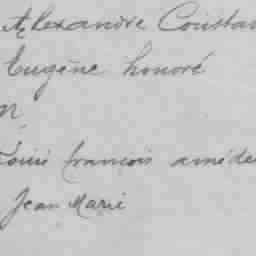 Alexandre Constan
Eugène honoré
n
Louis françois améde
Jean Marie